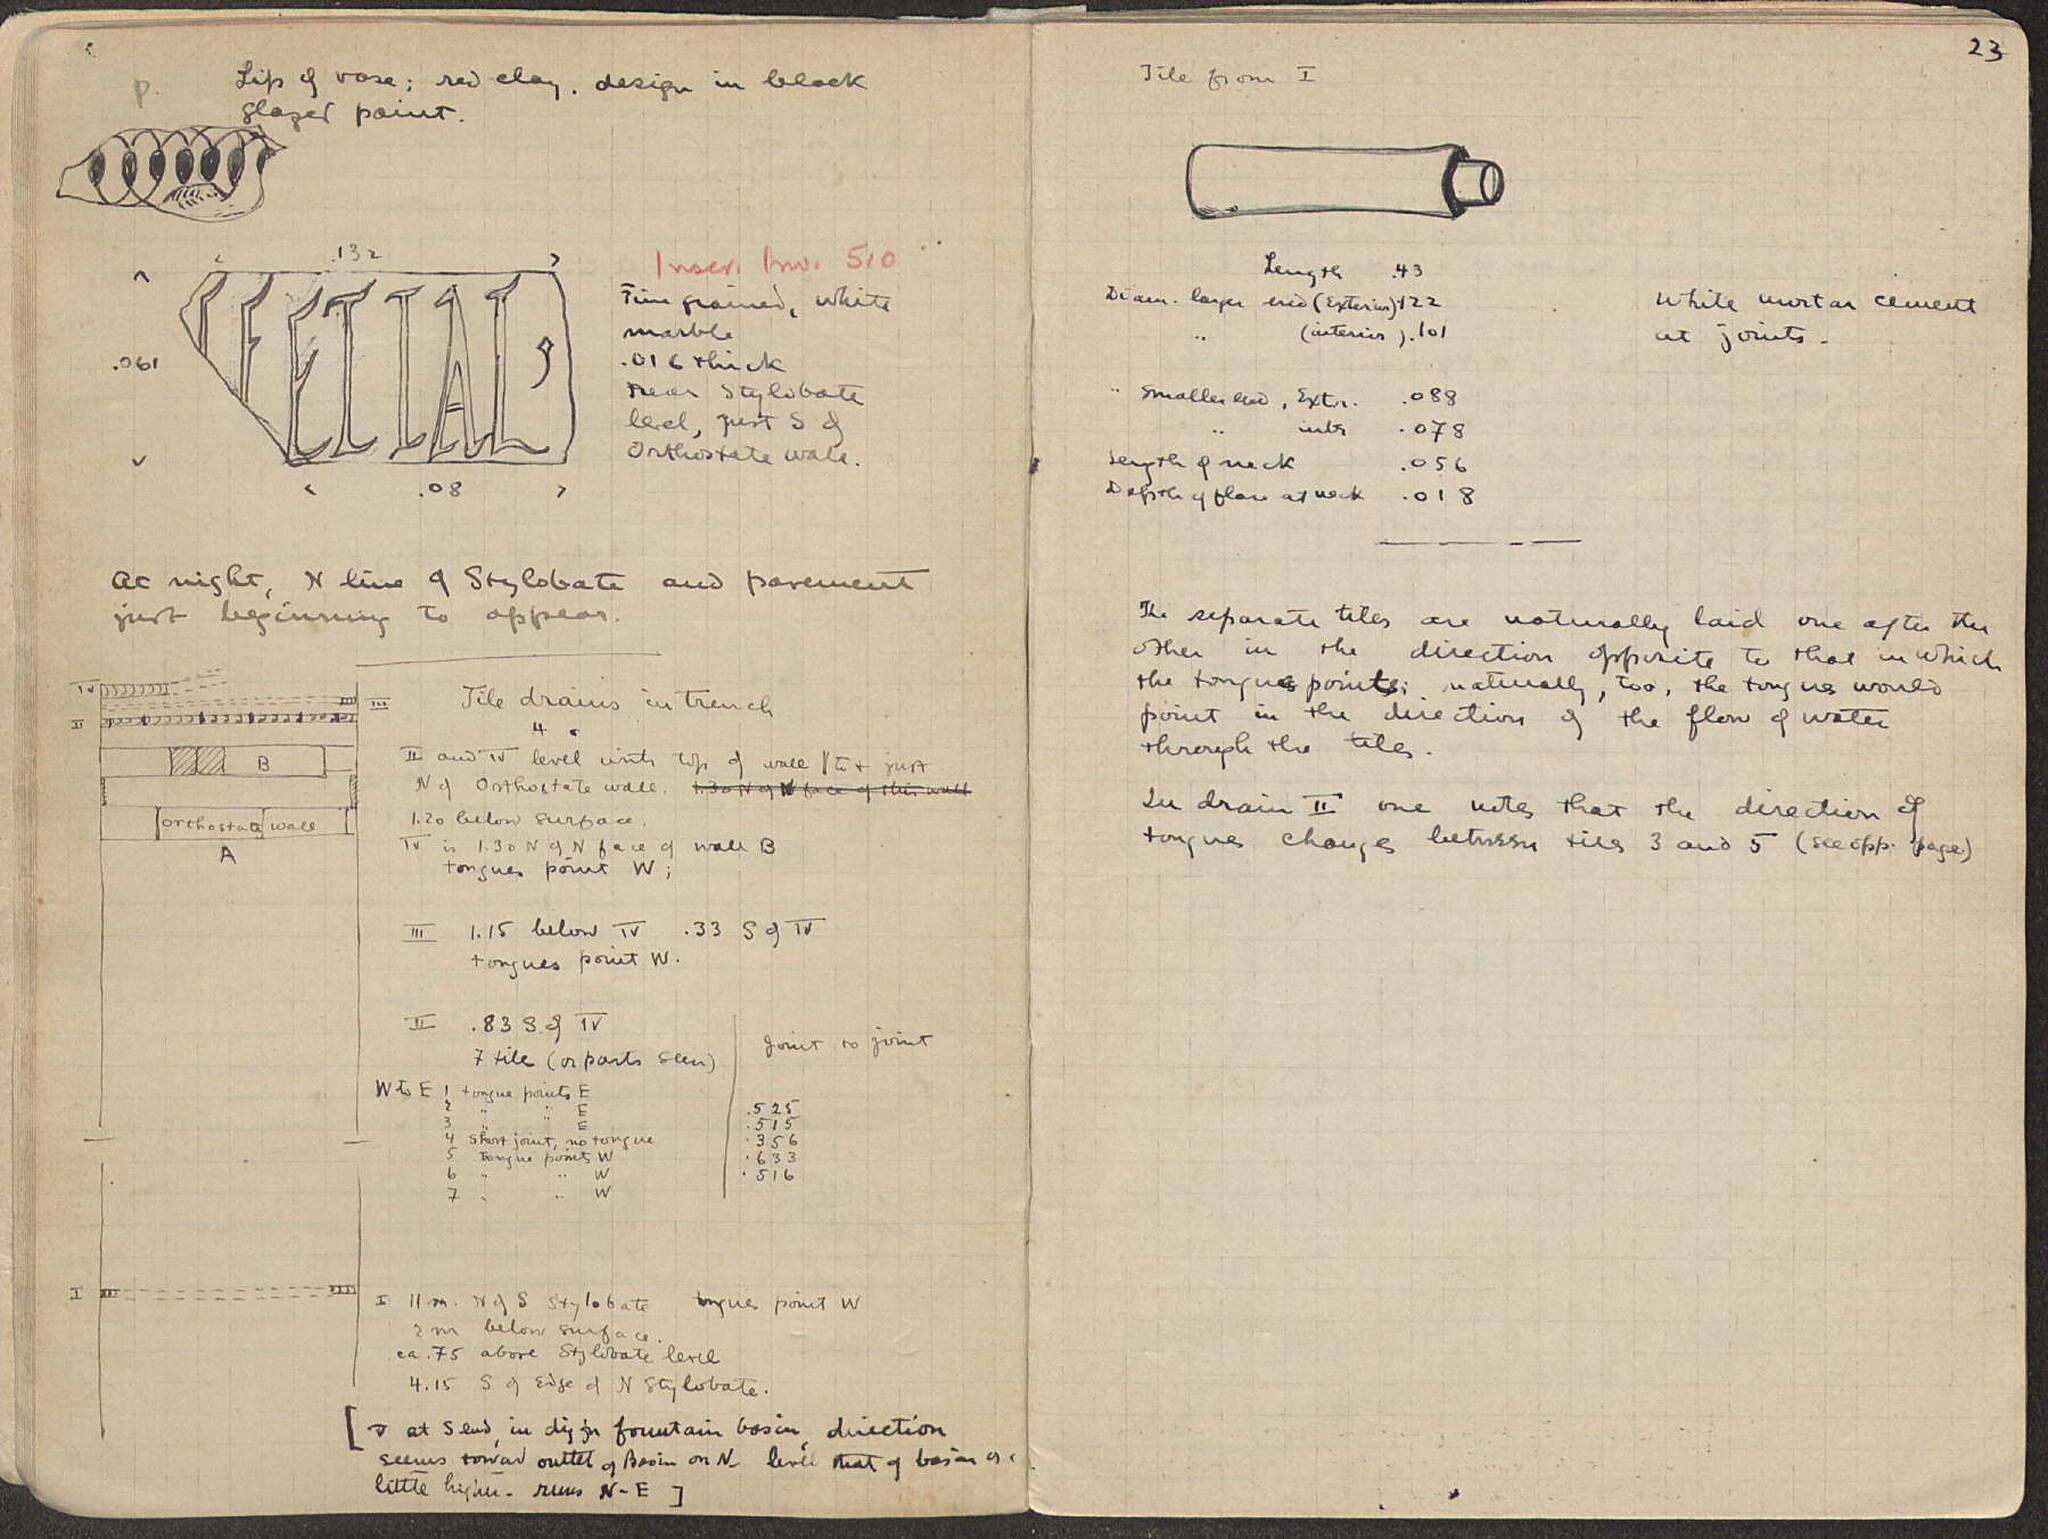 p.
Lip of vase; red clay. design in black
glazed paint.
.132
Inscr. Inv. 510
.061
FETIAL,
Fine grained, white
marble
.016 thick
near Stylobate
level, just S of
Orthostate wall.
.08
At night, N line of Stylobate and pavement
just beginning to appear.
IV
III
II
B
Orthostate wall
A
Tile drains in trench
4
II and IV level with top of wall just
N of Orthostate wall. 1.30 N of N face of this wall
1.20 below surface.
IV is 1.30 N of N face of wall B
tongues point W;
III 1.15 below IV .33 S of IV
tongues point W.
II .83 S of IV
7 tile (or parts seen)
Joint to joint
W to E 1 tongue points E
2 " " E .525
3 " " E .515
4 Short joint, no tongue .356
5 tongue points W .633
6 " " W .516
7 " " W
I
I 11 m. N of S Stylobate tongues point W
2 m below surface.
ca .75 above Stylobate level
4.15 S of Edge of N Stylobate.
[V at S end, in dig'g fountain basin, direction
seems toward outlet of Basin on N- level that of basin or
little higher- runs N-E]
23
Tile from I
Length .43
Diam. larger end (Exterior) .122
" (interior) .101
White mortar cement
at joints.
" Smaller end, Extr. .088
" intr .078
Length of neck .056
Depth of flare at neck .018
The separate tiles are naturally laid one after the
other in the direction opposite to that in which
the tongue points; naturally, too, the tongues would
point in the direction of the flow of water
through the tiles.
In drain II one notes that the direction of
tongues changes between tiles 3 and 5 (see opp. page)